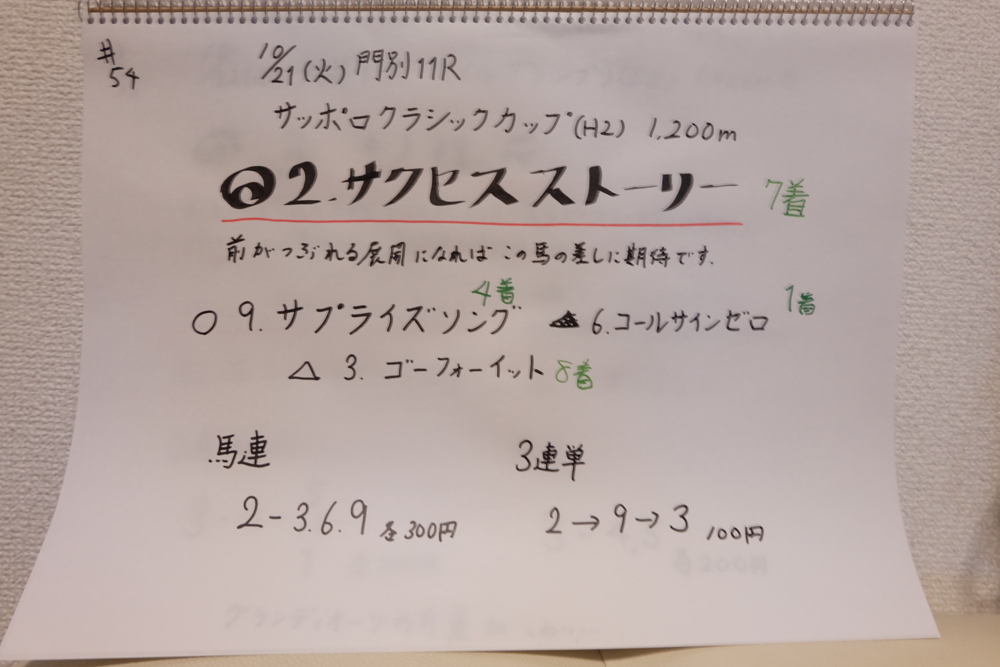 #54
10/21(火)門別11R
サッポロクラシックカップ(H2) 1,200m
◎2.サクセスストーリー 7着
前がつぶれる展開になればこの馬の差しに期待です.
○ 9.サプライズソング 4着 ▲ 6.コールサインゼロ 1着
△ 3.ゴーフォーイット 8着
馬連 3連単
2-3.6.9 各300円 2→9→3 100円